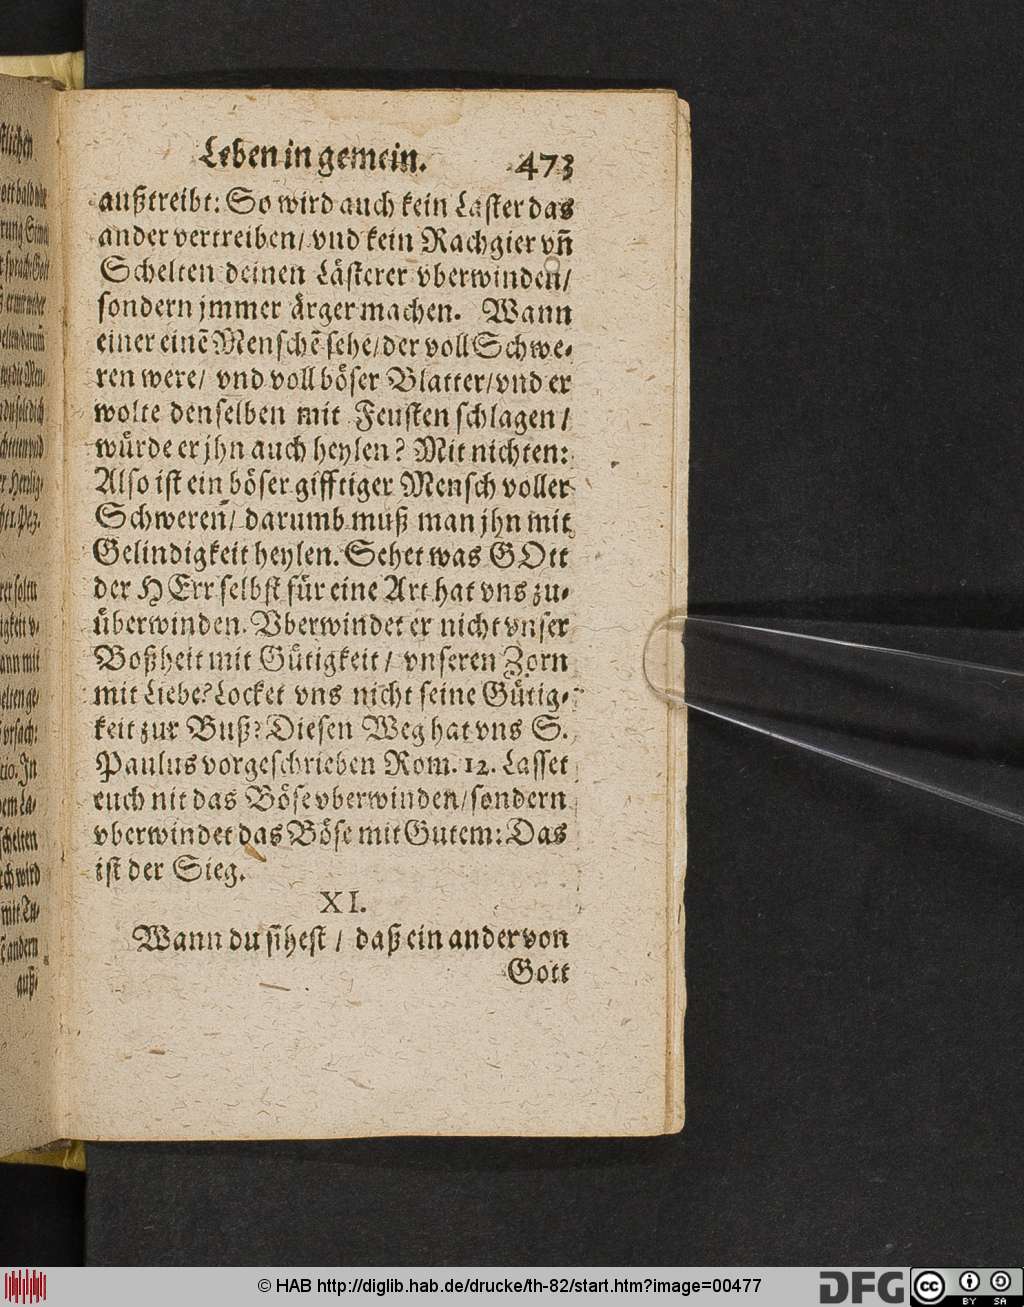 Leben in gemein. 473
außtreibt: So wird auch kein Laster das
ander vertreiben/ vnd kein Rachgier vn̄
Schelten deinen Lästerer vberwinden/
sondern jmmer ärger machen. Wann
einer einē Menschē sehe/ der voll Schwe-
ren were/ vnd voll böser Blatter/ vnd er
wolte denselben mit Feusten schlagen/
würde er jhn auch heylen? Mit nichten:
Also ist ein böser gifftiger Mensch voller
Schweren/ darumb muß man jhn mit
Gelindigkeit heylen. Sehet was GOtt
der HErr selbst für eine Art hat vns zu-
überwinden. Vberwindet er nicht vnser
Boßheit mit Gütigkeit/ vnseren Zorn
mit Liebe? Locket vns nicht seine Gütig-
keit zur Buß? Diesen Weg hat vns S.
Paulus vorgeschrieben Rom. 12. Lasset
euch nit das Böse vberwinden/ sondern
vberwindet das Böse mit Gutem: Das
ist der Sieg.
XI.
Wann du sihest/ daß ein ander von
Gott
© HAB http://diglib.hab.de/drucke/th-82/start.htm?image=00477
DFG
cc BY SA